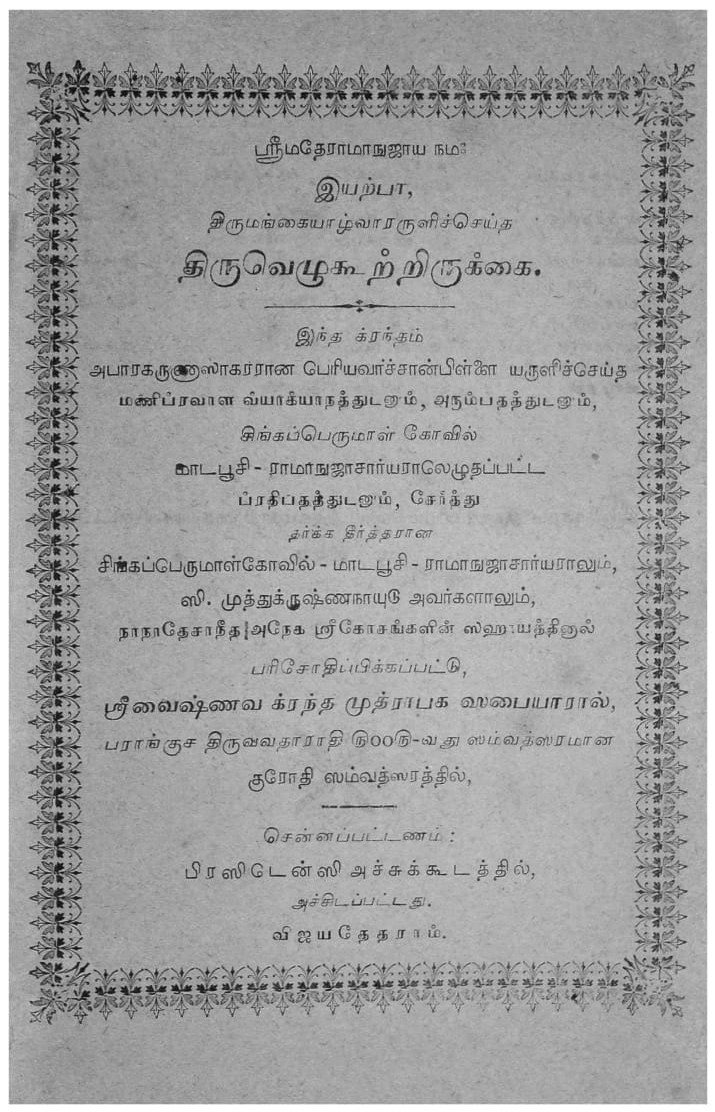 ஸ்ரீமதேராமாநுஜாய நமஃ
இயற்பா,
திருமங்கையாழ்வாரருளிச்செய்த
திருவெழுகூற்றிருக்கை.
இந்த க்ரந்தம்
அபாரகருணாஸாகரரான பெரியவாச்சான்பிள்ளை யருளிச்செய்த
மணிப்ரவாள வ்யாக்யாநத்துடனும், அரும்பதத்துடனும்,
சிங்கப்பெருமாள் கோவில்
மாடபூசி - ராமாநுஜாசார்யராலெழுதப்பட்ட
ப்ரதிபதத்துடனும், சேர்த்து
தர்க்க தீர்த்தரான
சிங்கப்பெருமாள்கோவில் - மாடபூசி - ராமாநுஜாசார்யராலும்,
ஸி. முத்துக்ருஷ்ணநாயுடு அவர்களாலும்,
நாநாதேசாநீத அநேக ஸ்ரீகோசங்களின் ஸஹாயத்தினால்
பரிசோதிப்பிக்கப்பட்டு,
ஸ்ரீவைஷ்ணவ க்ரந்த முத்ராபக ஸபையாரால்,
பராங்குச திருவவதாராதி ௫00௫-வது ஸம்வத்ஸரமான
குரோதி ஸம்வத்ஸரத்தில்,
சென்னப்பட்டணம் :
பிரஸிடென்ஸி அச்சுக்கூடத்தில்,
அச்சிடப்பட்டது.
விஜயதேதராம்.